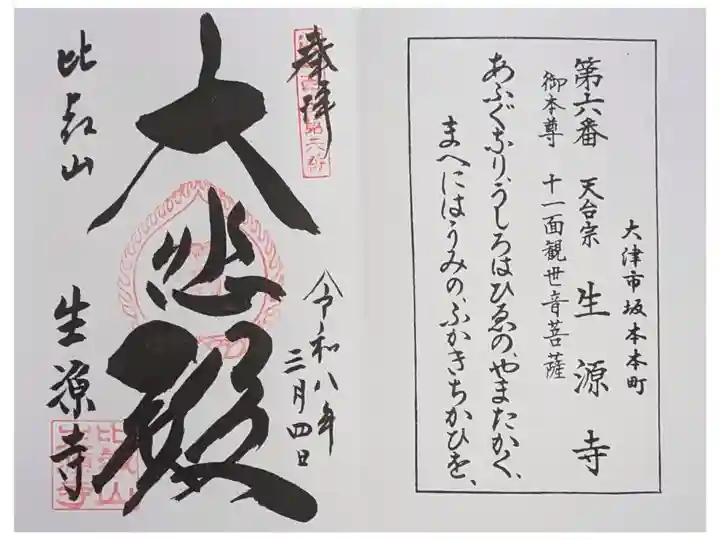 大津市坂本本町
第六番 天台宗 生源寺
御本尊 十一面観世音菩薩
あふぐなり、うしろはひゑの、やまたかく、
まへにはうみの、ふかきちかひを、
奉拝
令和八年
三月四日
大悲殿
比叡山
生源寺